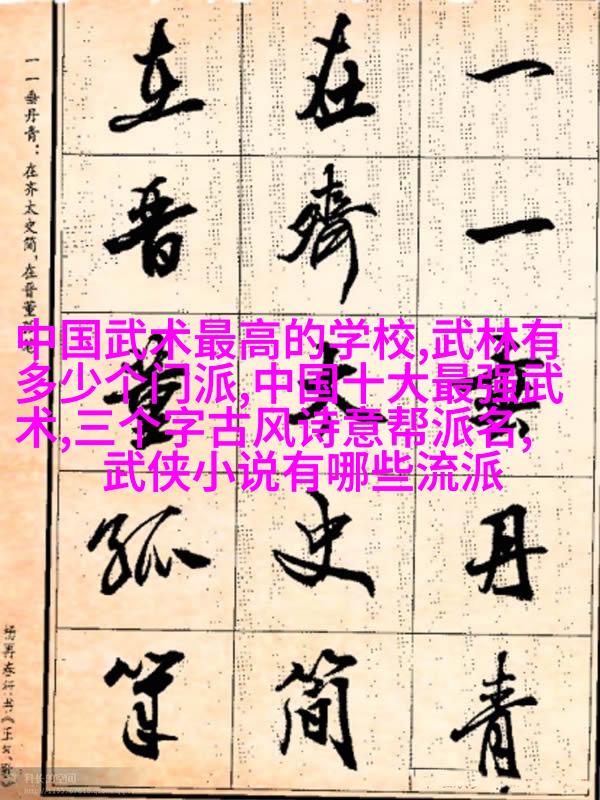 中国武术最高的学校,武林有
多少个门派,中国十大最强武
术,三个字古风诗意帮派名,
武侠小说有哪些流派
一一垂丹青
在齊太史简
在晋董狐筆
一一垂丹青：在齐太史简，在晋董
杨再春行书《正气
科长的空间